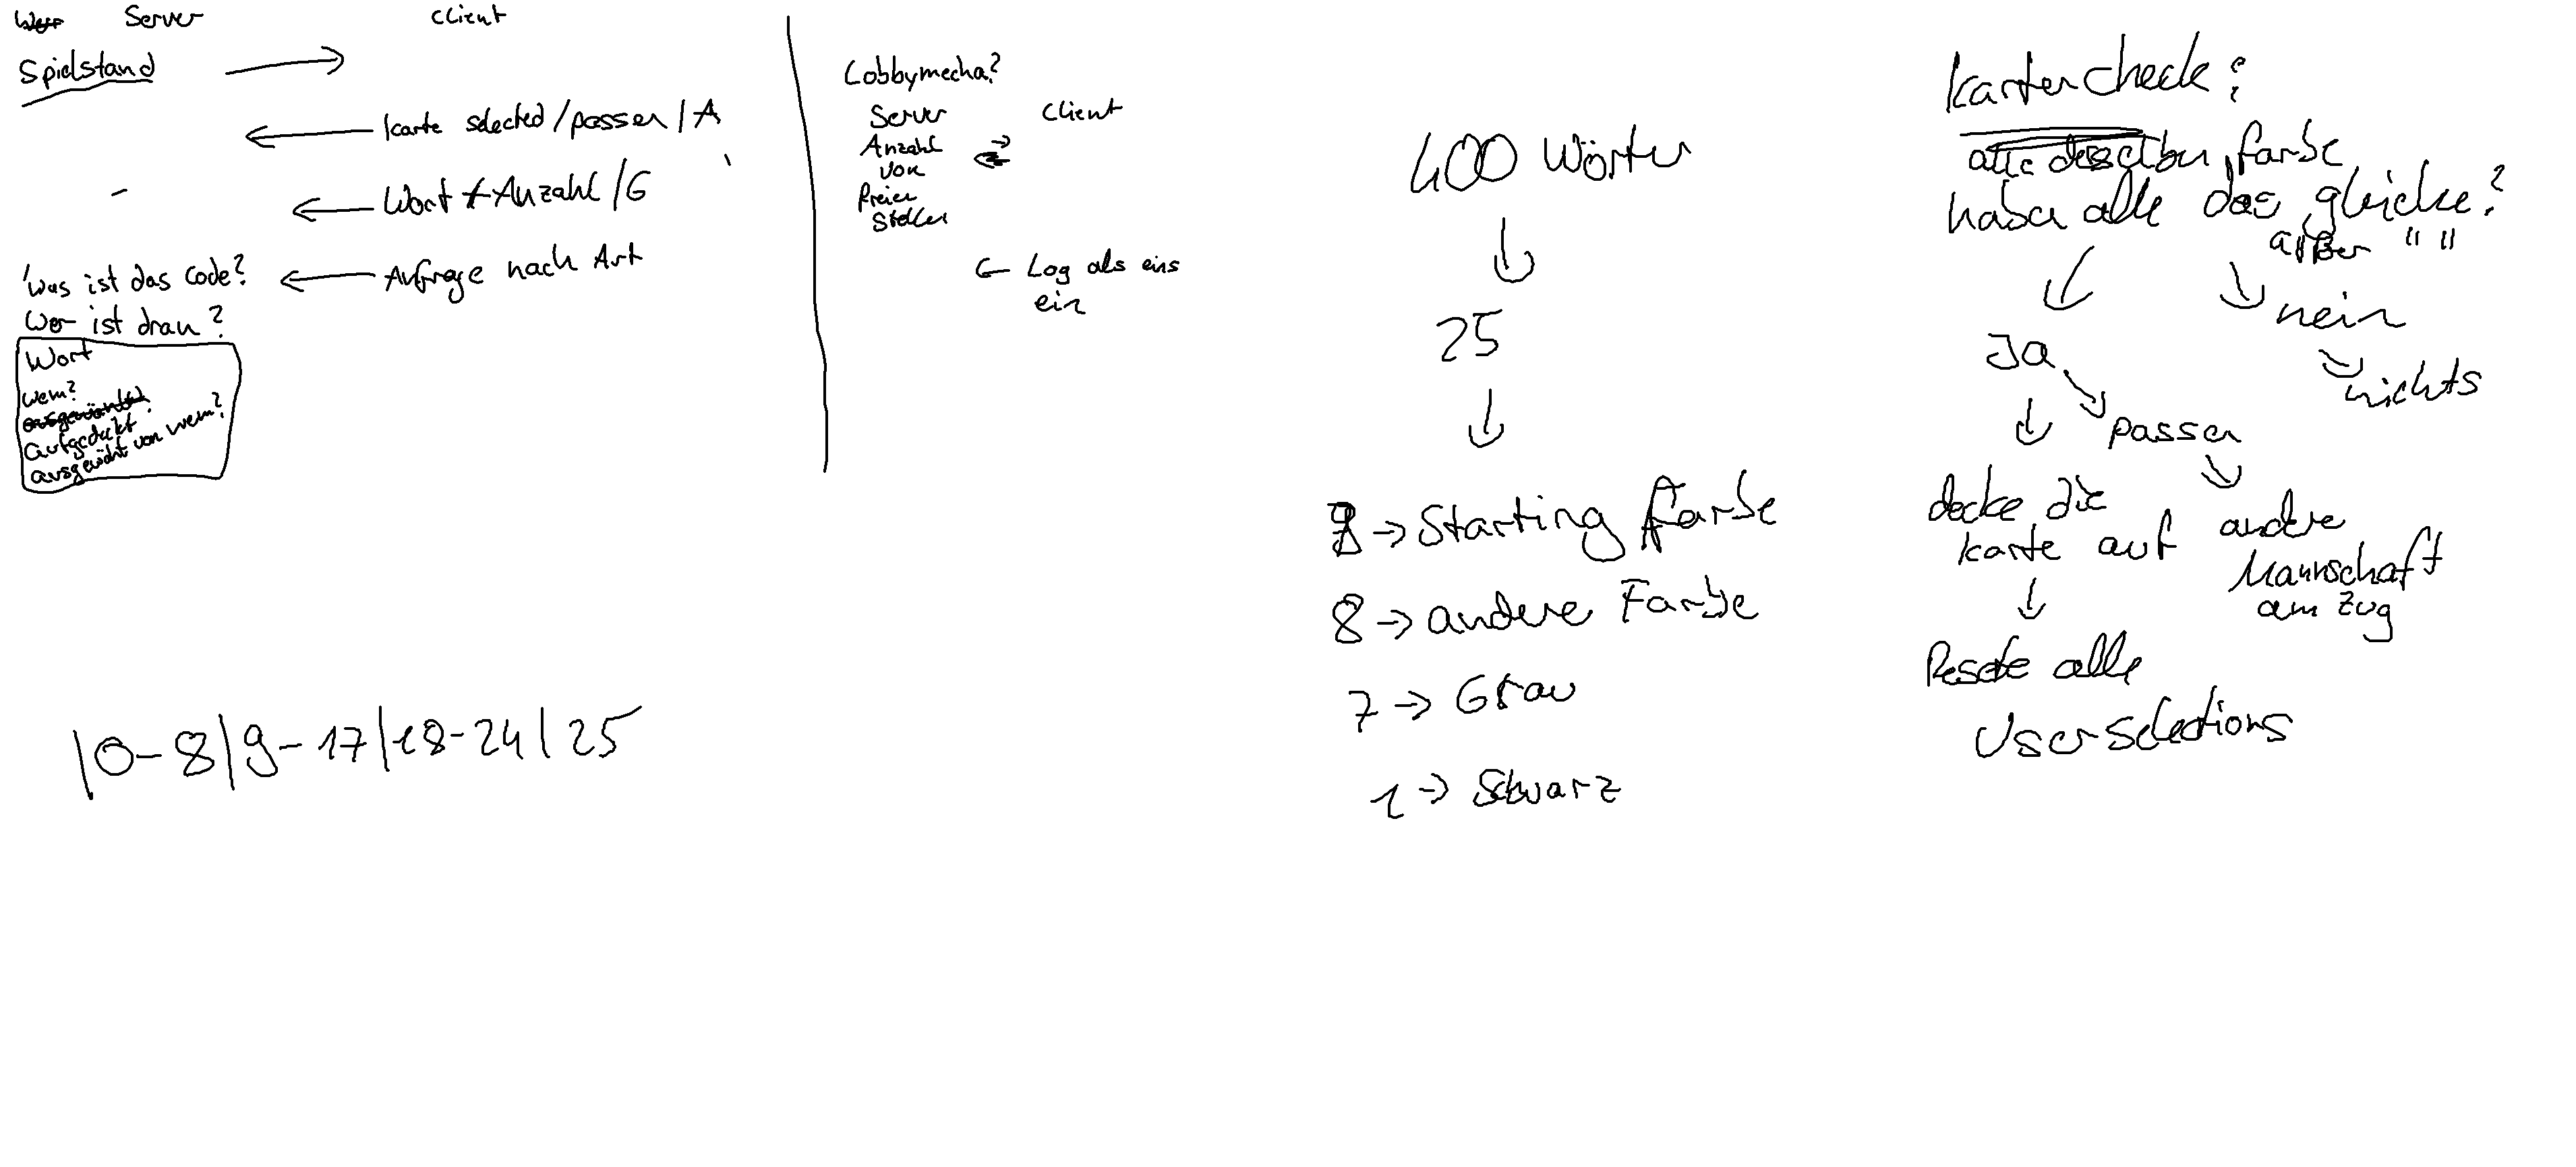 Server Client
Spielstand
Karte selected/passen/A
Wort + Anzahl/G
Was ist das Code?
Anfrage nach Art
Wer ist dran?
Wort
wem?
ausgewählt?
aufgedeckt
ausgewählt von wem?
Lobbymecha?
Server Client
Anzahl
von
freien
Stellen
Log als eins
ein
400 Wörter
25
9 → Starting Farbe
8 → andere Farbe
7 → Grau
1 → Schwarz
|0-8|9-17|18-24|25
Kartencheck:
alle desselben Farbe
haben alle das gleiche?
außer " "
Ja
nein
nichts
passen
decke die
Karte auf
andere
Mannschaft
am Zug
Resete alle
Userselections